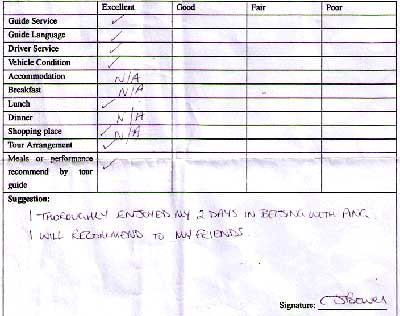 Excellent Good Fair Poor
Guide Service ✓
Guide Language ✓
Driver Service ✓
Vehicle Condition ✓
Accommodation N/A
Breakfast N/A
Lunch ✓
Dinner N/A
Shopping place ✓ N/A
Tour Arrangement ✓
Meals or performance ✓
recommend by tour
guide
Suggestion:
I THOROUGHLY ENJOYED MY 2 DAYS IN BEIJING WITH
I WILL RECOMMEND TO MY FRIENDS.
Signature: